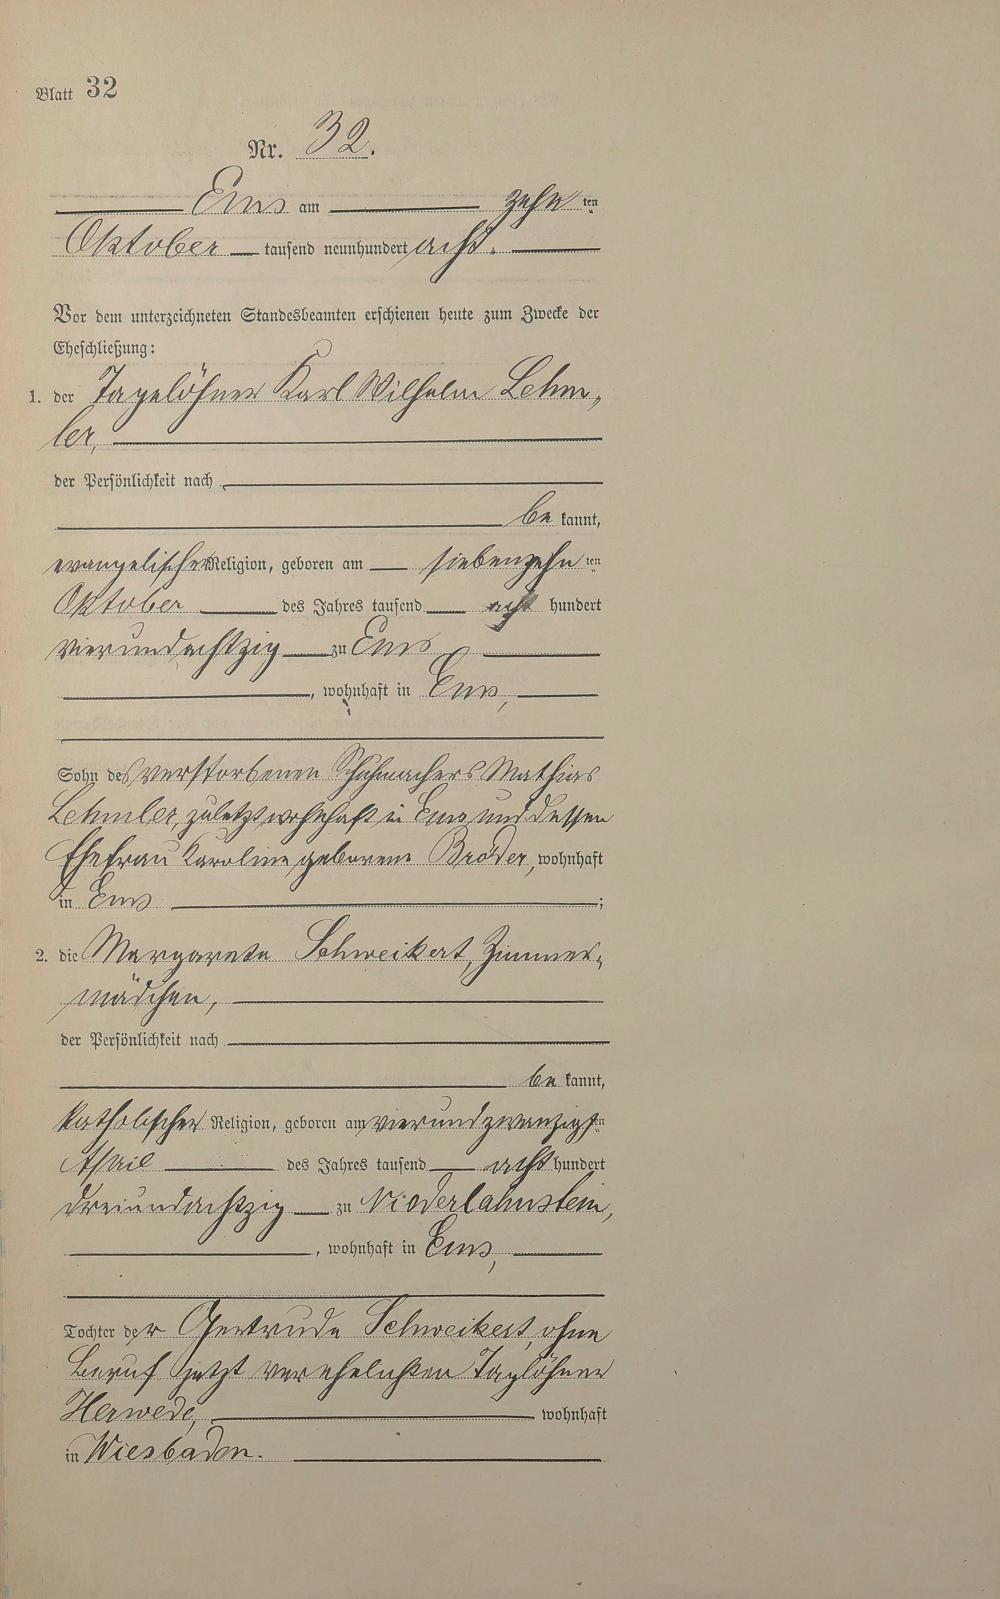 Blatt 32
Nr. 32.
Ems am zehn ten
Oktober tausend neunhundert acht.
Vor dem unterzeichneten Standesbeamten erschienen heute zum Zwecke der
Eheschließung:
1. der Tagelöhner Karl Wilhelm Lehm-
ler,
der Persönlichkeit nach
be kannt,
evangelischer Religion, geboren am siebenzehn ten
Oktober des Jahres tausend acht hundert
vierundachtzig zu Ems
, wohnhaft in Ems,
Sohn des verstorbenen Schuhmachers Mathias
Lehmler, zuletzt wohnhaft in Ems und dessen
Ehefrau Karoline geborene Bröder, wohnhaft
in Ems ;
2. die Margareta Schweikert, Zimmer-
mädchen,
der Persönlichkeit nach
be kannt,
katholischer Religion, geboren am vierundzwanzigsten
April des Jahres tausend acht hundert
dreiundachtzig zu Niederlahnstein,
, wohnhaft in Ems,
Tochter der Gertrude Schweikert, ohne
Beruf jetzt verehelichten Taglöhner
Herwede, wohnhaft
in Wiesbaden.